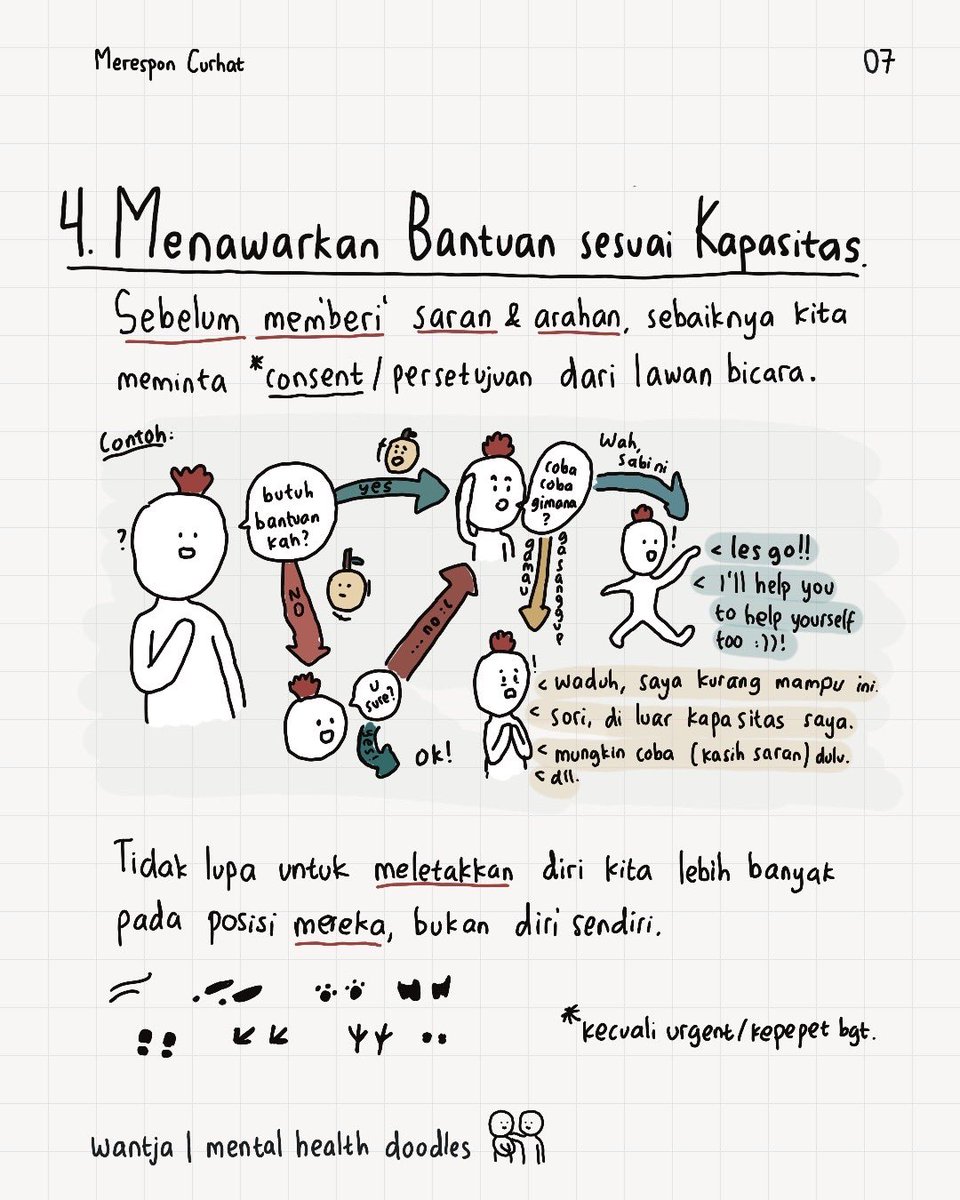 Merespon Curhat
07
4. Menawarkan Bantuan sesuai Kapasitas.
Sebelum memberi saran & arahan, sebaiknya kita
meminta *consent / persetujuan dari lawan bicara.
Contoh:
?
butuh
bantuan
kah?
yes
coba
coba
gimana
?
Wah,
sabi ni
!
< les go!!
< I'll help you
to help yourself
too :))!
NO
u
sure?
yes!
ok!
...no :(
gamau
gasanggup
!
< waduh, saya kurang mampu ini.
< sori, di luar kapasitas saya.
< mungkin coba (kasih saran) dulu.
< dll.
Tidak lupa untuk meletakkan diri kita lebih banyak
pada posisi mereka, bukan diri sendiri.
*kecuali urgent/kepepet bgt.
wantja | mental health doodles